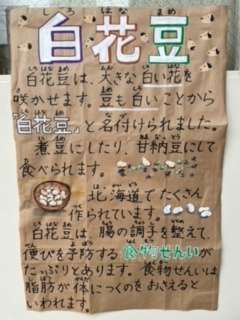 しろ はな まめ
白花豆
白花豆は、大きな白い花を
咲かせます。豆も白いことから
「白花豆」と名付けられました。
煮豆にしたり、甘納豆にして
食べられます。
北海道でたくさん
作られています。
白花豆は、腸の調子を整えて、
便びを予防する食物せんいが
たっぷりとあります。食物せんいは
脂肪が体につくのをおさえると
いわれます。